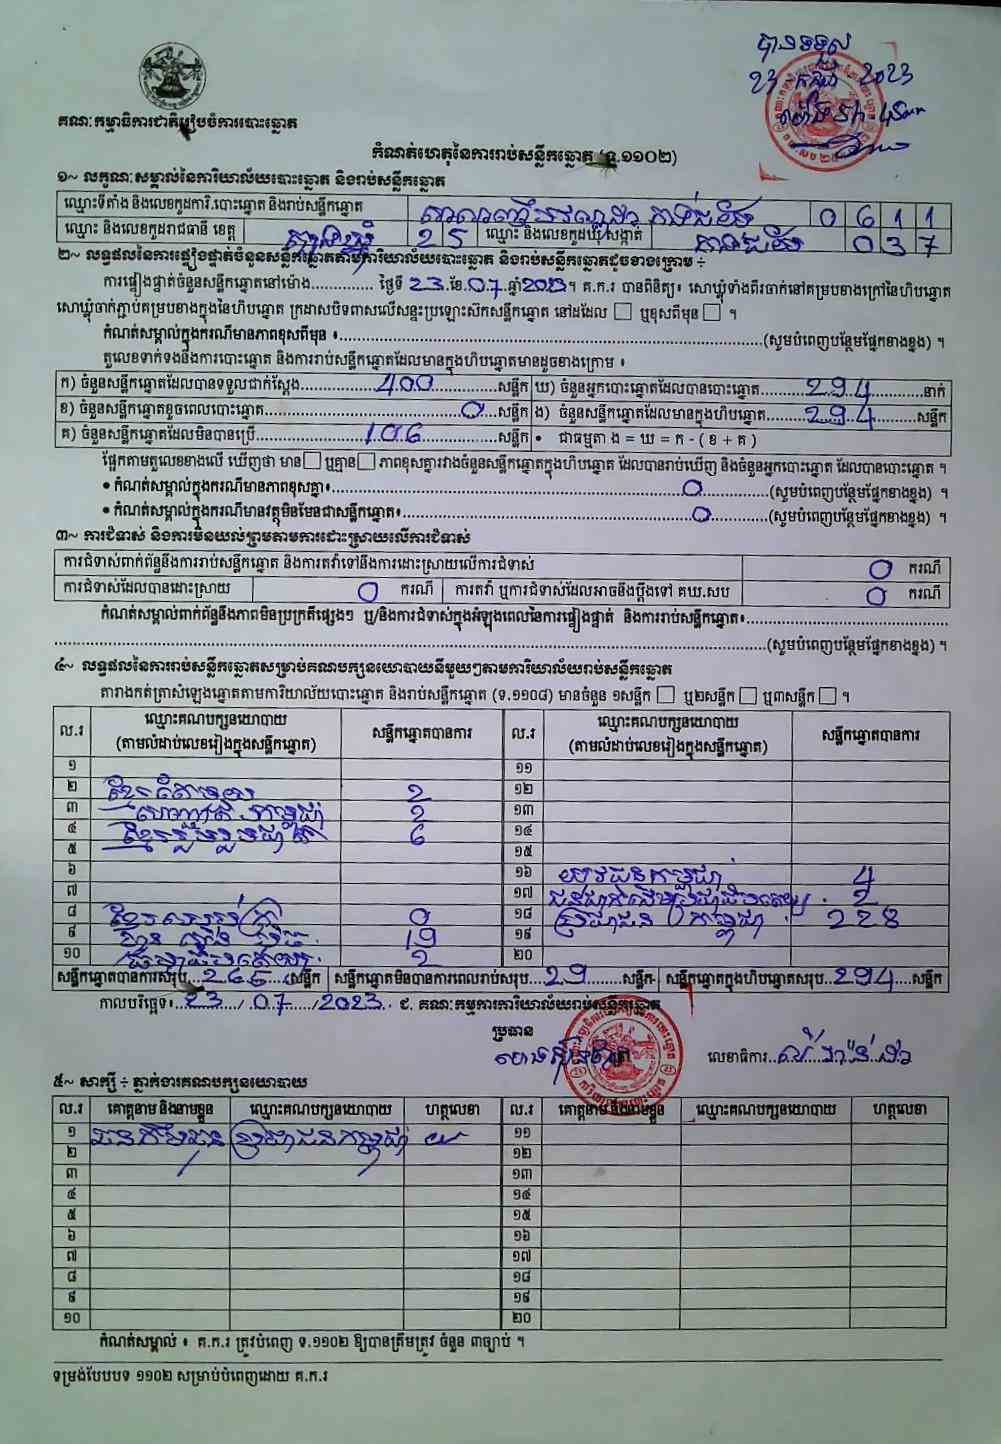 បានទទួល
23 កក្កដា 2023
គណៈកម្មាធិការជាតិរៀបចំការបោះឆ្នោត
កំណត់ហេតុនៃការរាប់សន្លឹកឆ្នោត (ទ.១១០២)
១~ លក្ខណៈសម្គាល់នៃការិយាល័យបោះឆ្នោត និងរាប់សន្លឹកឆ្នោត
ឈ្មោះទីតាំង និងលេខកូដការិ.បោះឆ្នោត និងរាប់សន្លឹកឆ្នោត 0 6 1 1
ឈ្មោះ និងលេខកូដរាជធានី ខេត្ត 25 ឈ្មោះ និងលេខកូដឃុំ សង្កាត់ 0 3 7
២~ លទ្ធផលនៃការផ្ទៀងផ្ទាត់ចំនួនសន្លឹកឆ្នោតតាមការិយាល័យបោះឆ្នោត និងរាប់សន្លឹកឆ្នោតដូចខាងក្រោម ÷
ការផ្ទៀងផ្ទាត់ចំនួនសន្លឹកឆ្នោតនៅម៉ោង.............. ថ្ងៃទី 23 ខែ.07.ឆ្នាំ2023។ គ.ក.រ បានពិនិត្យ៖ សោឃ្លុំទាំងពីរចាក់នៅគម្របខាងក្រៅនៃហិបឆ្នោត
សោឃ្លុំចាក់ភ្ជាប់គម្របខាងក្នុងនៃហិបឆ្នោត ក្រដាសបិទពាសលើសន្ទះប្រឡោះស៊កសន្លឹកឆ្នោត នៅដដែល □ ឬខុសពីមុន □ ។
កំណត់សម្គាល់ក្នុងករណីមានភាពខុសពីមុន ៖..............(សូមបំពេញបន្ថែមផ្នែកខាងខ្នង) ។
តួលេខទាក់ទងនឹងការបោះឆ្នោត និងការរាប់សន្លឹកឆ្នោតដែលមានក្នុងហិបឆ្នោតមានដូចខាងក្រោម ៖
ក) ចំនួនសន្លឹកឆ្នោតដែលបានទទួលជាក់ស្ដែង.......400.......សន្លឹក ឃ) ចំនួនអ្នកបោះឆ្នោតដែលបានបោះឆ្នោត.......294.......នាក់
ខ) ចំនួនសន្លឹកឆ្នោតខូចពេលបោះឆ្នោត.......0.......សន្លឹក ង) ចំនួនសន្លឹកឆ្នោតដែលមានក្នុងហិបឆ្នោត.......294.......សន្លឹក
គ) ចំនួនសន្លឹកឆ្នោតដែលមិនបានប្រើ.......106.......សន្លឹក • ជាធម្មតា ង = ឃ = ក - ( ខ + គ )
ផ្អែកតាមតួលេខខាងលើ ឃើញថា មាន□ឬគ្មាន□ភាពខុសគ្នារវាងចំនួនសន្លឹកឆ្នោតក្នុងហិបឆ្នោត ដែលបានរាប់ឃើញ និងចំនួនអ្នកបោះឆ្នោត ដែលបានបោះឆ្នោត ។
• កំណត់សម្គាល់ក្នុងករណីមានភាពខុសគ្នា៖.......0.......(សូមបំពេញបន្ថែមផ្នែកខាងខ្នង) ។
• កំណត់សម្គាល់ក្នុងករណីមានវត្ថុមិនមែនជាសន្លឹកឆ្នោត៖.......0.......(សូមបំពេញបន្ថែមផ្នែកខាងខ្នង) ។
៣~ ការជំទាស់ និងការមិនយល់ព្រមតាមការដោះស្រាយលើការជំទាស់
ការជំទាស់ពាក់ព័ន្ធនឹងការរាប់សន្លឹកឆ្នោត និងការតវ៉ាទៅនឹងការដោះស្រាយលើការជំទាស់ 0 ករណី
ការជំទាស់ដែលបានដោះស្រាយ 0 ករណី ការតវ៉ា ឬការជំទាស់ដែលអាចនឹងប្ដឹងទៅ គឃ.សប 0 ករណី
កំណត់សម្គាល់ពាក់ព័ន្ធនឹងភាពមិនប្រក្រតីផ្សេងៗ ឬ/និងការជំទាស់ក្នុងអំឡុងពេលនៃការផ្ទៀងផ្ទាត់ និងការរាប់សន្លឹកឆ្នោត៖..............
..............(សូមបំពេញបន្ថែមផ្នែកខាងខ្នង) ។
៤~ លទ្ធផលនៃការរាប់សន្លឹកឆ្នោតសម្រាប់គណបក្សនយោបាយនីមួយៗតាមការិយាល័យរាប់សន្លឹកឆ្នោត
តារាងកត់ត្រាសំឡេងឆ្នោតតាមការិយាល័យបោះឆ្នោត និងរាប់សន្លឹកឆ្នោត (ទ.១១០៨) មានចំនួន ១សន្លឹក □ ឬ២សន្លឹក □ ឬ៣សន្លឹក □ ។
ល.រ ឈ្មោះគណបក្សនយោបាយ សន្លឹកឆ្នោតបានការ ល.រ ឈ្មោះគណបក្សនយោបាយ សន្លឹកឆ្នោតបានការ
(តាមលំដាប់លេខរៀងក្នុងសន្លឹកឆ្នោត) (តាមលំដាប់លេខរៀងក្នុងសន្លឹកឆ្នោត)
១ ១១
២ ខ្មែរតែមួយ 2 ១២
៣ កម្ពុជា ១៣
៤ ខ្មែររួបរួមជាតិ 6 ១៤
៥ ១៥
៦ ១៦ យុវជនកម្ពុជា 4
៧ ១៧ ជនជាតិដើមប្រជាធិបតេយ្យ 2
៨ ១៨ ប្រជាជន កម្ពុជា 228
៩ ហ៊្វុនស៊ិនប៉ិច 19 ១៩
១០ ២០
សន្លឹកឆ្នោតបានការសរុប...265...សន្លឹក សន្លឹកឆ្នោតមិនបានការពេលរាប់សរុប..29.......សន្លឹក សន្លឹកឆ្នោតក្នុងហិបឆ្នោតសរុប..294.....សន្លឹក
កាលបរិច្ឆេទ៖..23..../..07..../..2023. ជ. គណៈកម្មការការិយាល័យរាប់សន្លឹកឆ្នោត
ប្រធាន
លេខាធិការ
៥~ សាក្សី ÷ ភ្នាក់ងារគណបក្សនយោបាយ
ល.រ គោត្តនាម និងនាមខ្លួន ឈ្មោះគណបក្សនយោបាយ ហត្ថលេខា ល.រ គោត្តនាម និងនាមខ្លួន ឈ្មោះគណបក្សនយោបាយ ហត្ថលេខា
១ ប្រជាជនកម្ពុជា ១១
២ ១២
៣ ១៣
៤ ១៤
៥ ១៥
៦ ១៦
៧ ១៧
៨ ១៨
៩ ១៩
១០ ២០
កំណត់សម្គាល់ ៖ គ.ក.រ ត្រូវបំពេញ ទ.១១០២ ឱ្យបានត្រឹមត្រូវ ចំនួន ៣ច្បាប់ ។
ទម្រង់បែបបទ ១១០២ សម្រាប់បំពេញដោយ គ.ក.រ